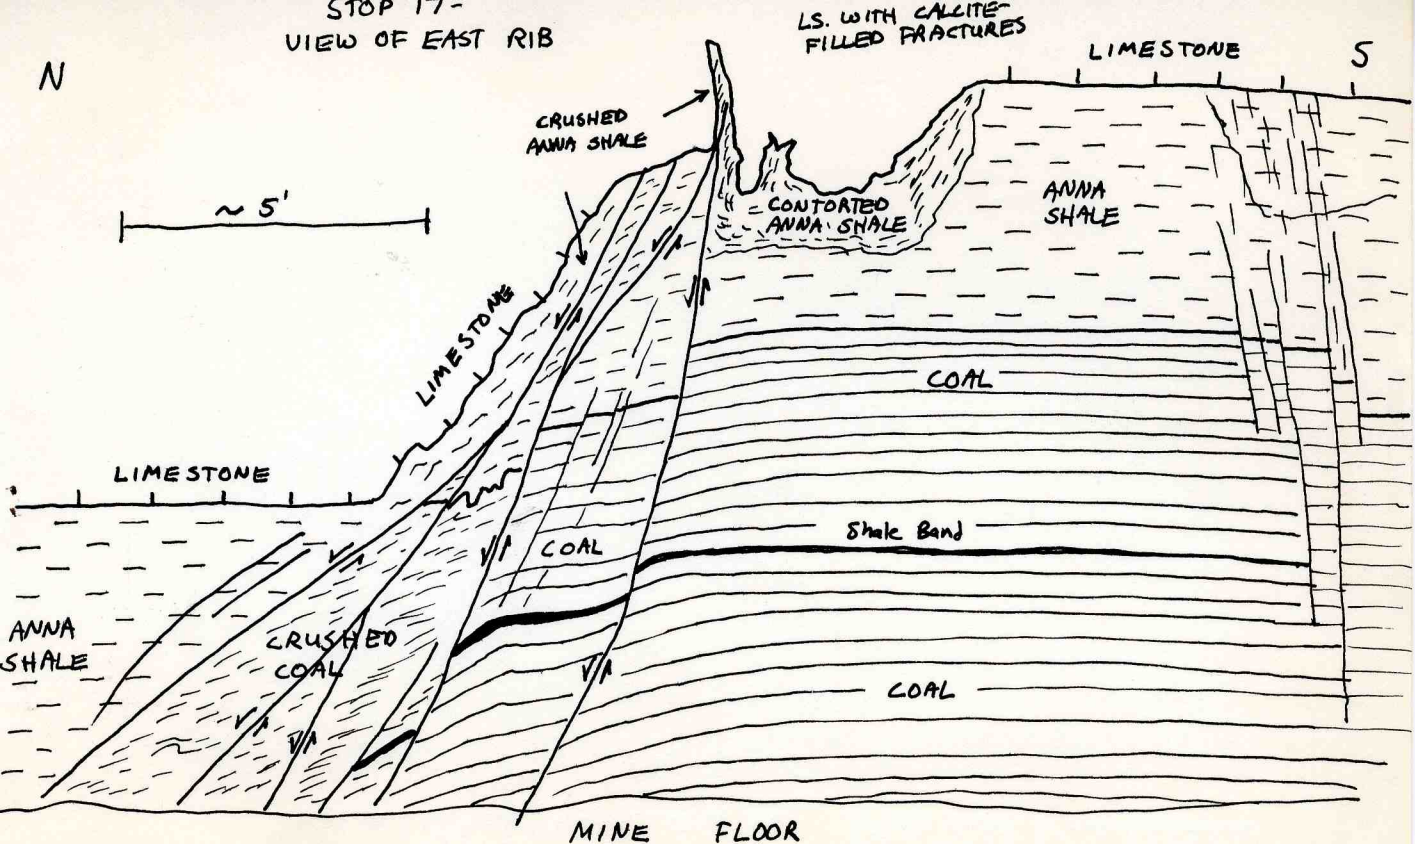 STOP 17-
VIEW OF EAST RIB
LS. WITH CALCITE-
FILLED FRACTURES
LIMESTONE
N
S
CRUSHED
ANNA SHALE
~ 5'
CONTORTED
ANNA SHALE
ANNA
SHALE
LIMESTONE
COAL
LIMESTONE
Shale Band
COAL
ANNA
SHALE
CRUSHED
COAL
COAL
MINE FLOOR